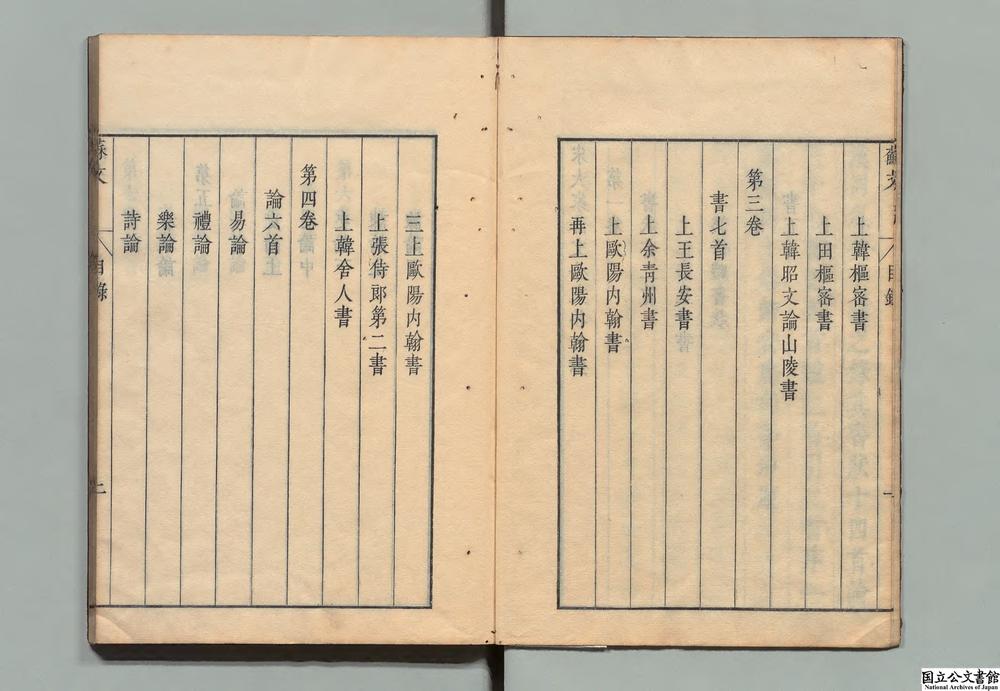 上韓樞密書
上田樞密書
上韓昭文論山陵書
第三卷
書七首
上王長安書
上余青州書
上歐陽內翰書
再上歐陽內翰書
三上歐陽內翰書
上張侍郎第二書
上韓舍人書
第四卷
論六首
易論
禮論
樂論
詩論
蘇文
目錄
一
蘇文
目錄
国立公文書館
National Archives of Japan